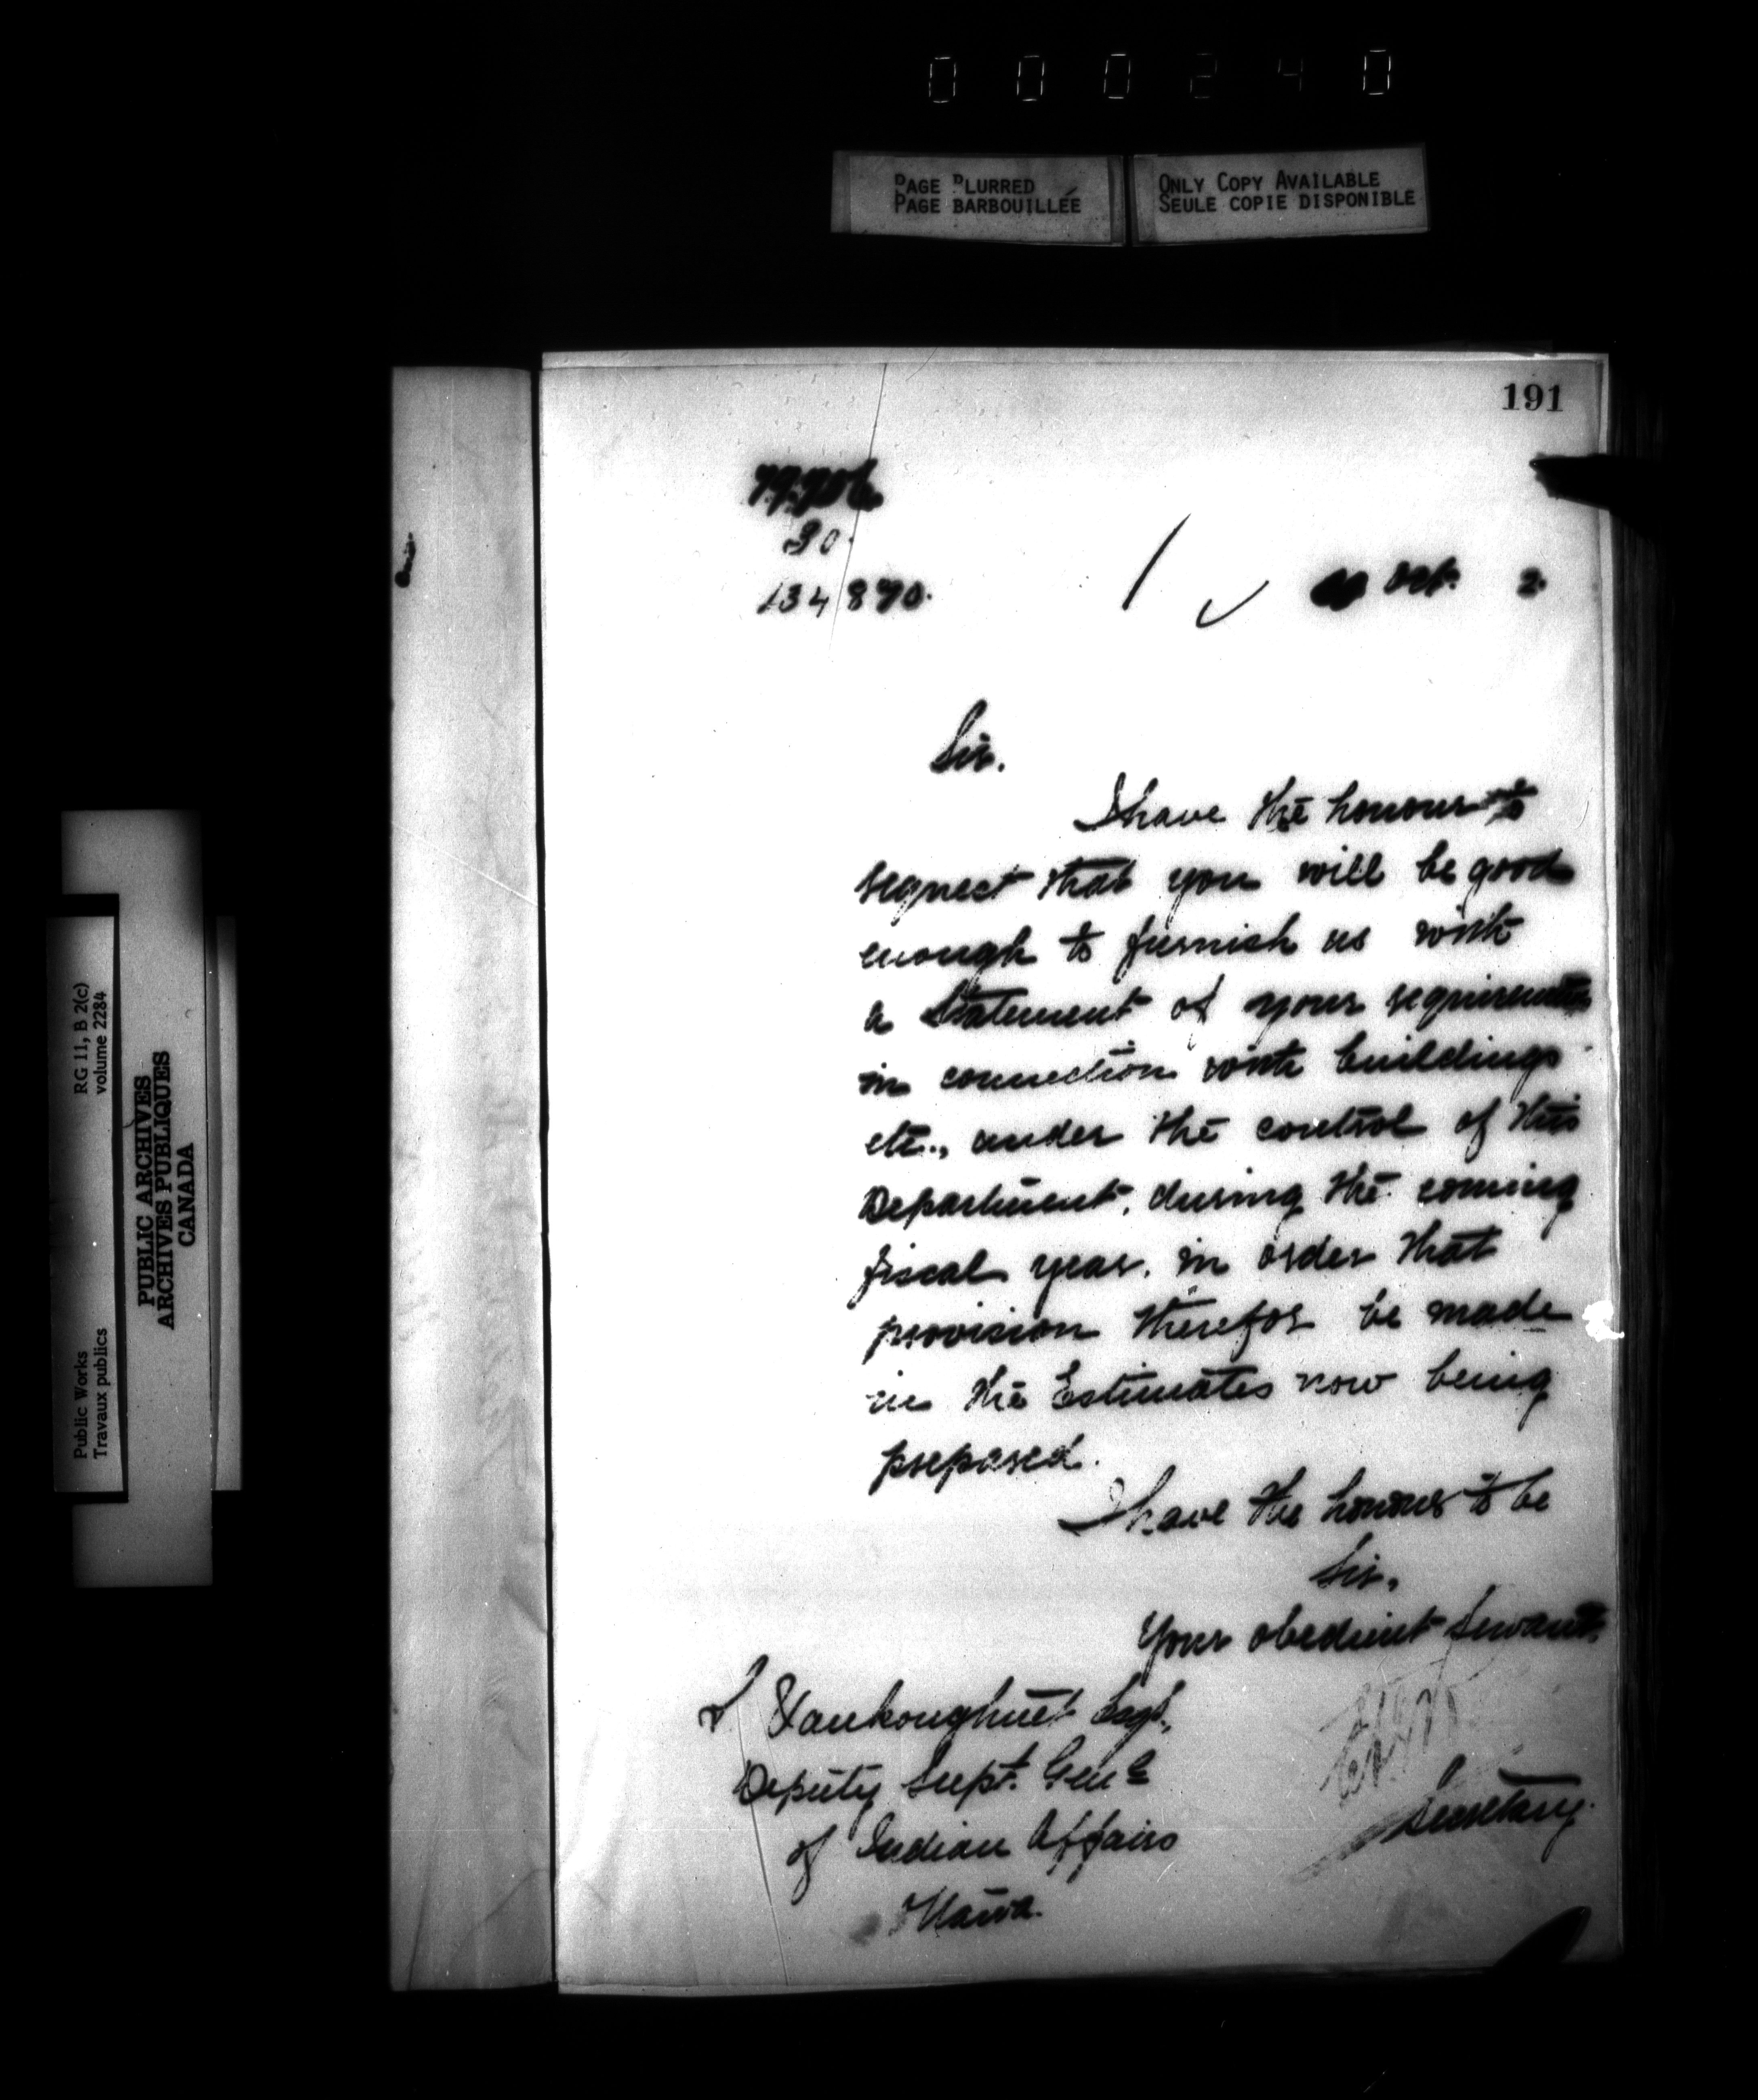 000240
PAGE BLURRED
PAGE BARBOUILLÉE
ONLY COPY AVAILABLE
SEULE COPIE DISPONIBLE
191
30.
134870.
Oct. 2.
Sir.
I have the honour to
request that you will be good
enough to furnish us with
a Statement of your requirements
in connection with buildings
etc., under the control of this
Department, during the coming
fiscal year, in order that
provision therefor be made
in the Estimates now being
prepared.
I have the honour to be
Sir,
Your obedient Servant,
Secretary.
L Vankoughnet Esqr.,
Deputy Supt. Genl
of Indian Affairs
Ottawa.
Public Works
Travaux publics
RG 11, B 2(c)
volume 2284
PUBLIC ARCHIVES
ARCHIVES PUBLIQUES
CANADA